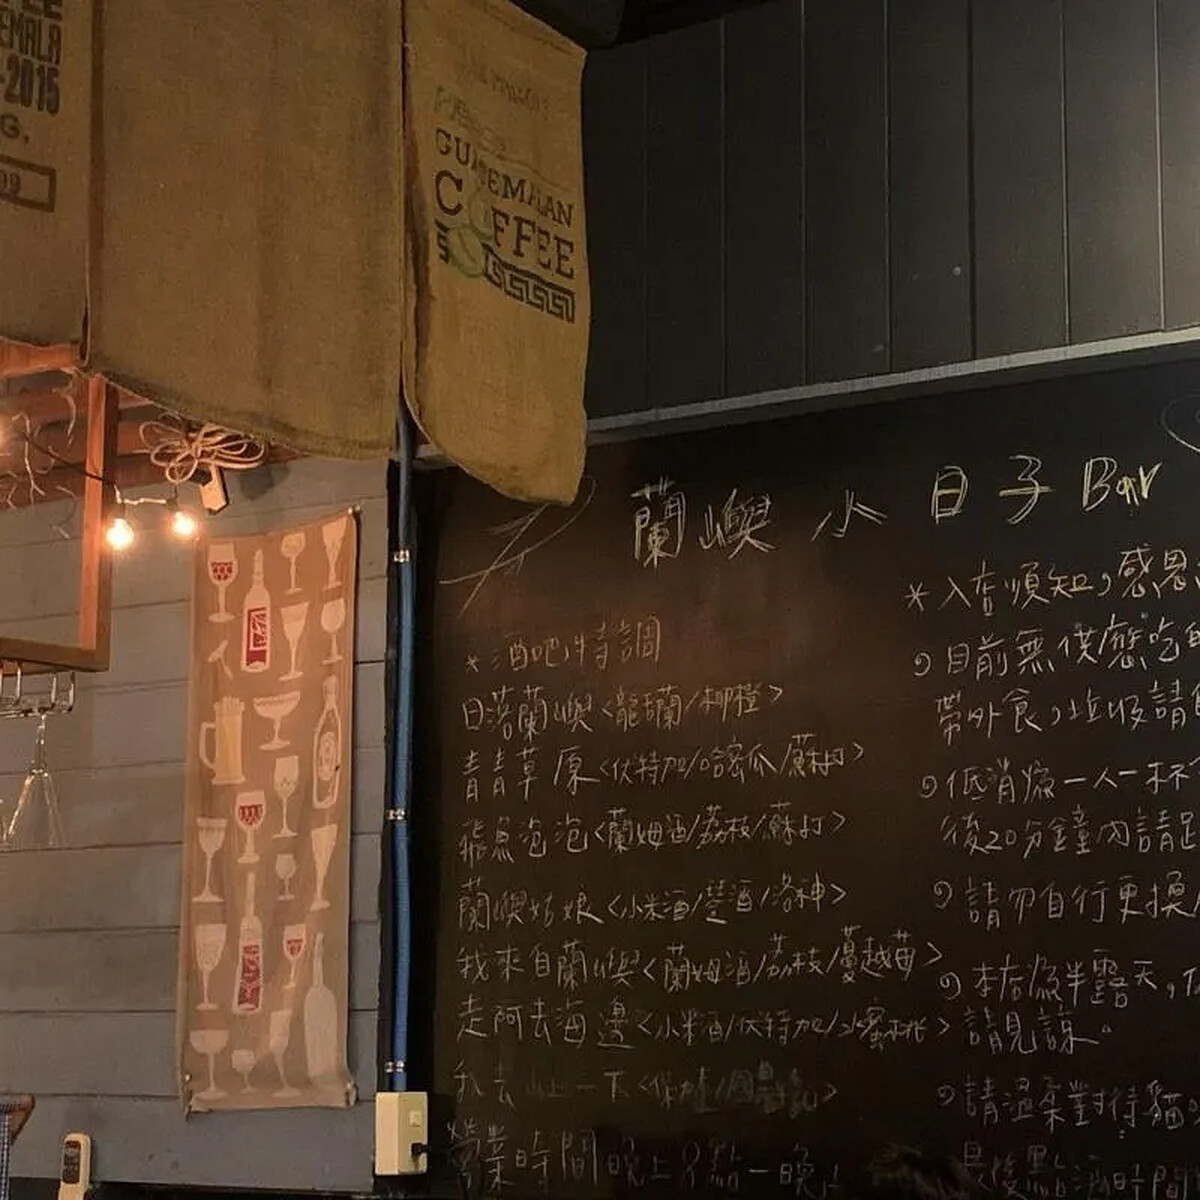 EMALA
-2015
G.
GUATEMALAN
COFFEE
蘭嶼小日子Bar
*酒吧特調
日落蘭嶼<龍舌蘭/柳橙>
青青草原<伏特加/哈密瓜/蘇打>
飛魚泡泡<蘭姆酒/荔枝/蘇打>
蘭嶼姑娘<小米酒/萱酒/洛神>
我來自蘭嶼<蘭姆酒/荔枝/蔓越莓>
走阿去海邊<小米酒/伏特加/水蜜桃>
我去 一下
營業時間 晚上8點-晚上
*入店須知,感恩
目前無供應吃
帶外食,垃圾請
低消為一人一杯
後20分鐘內請
請勿自行更換
本店為半露天,
請見諒
請溫柔對待貓
最後點酒時間